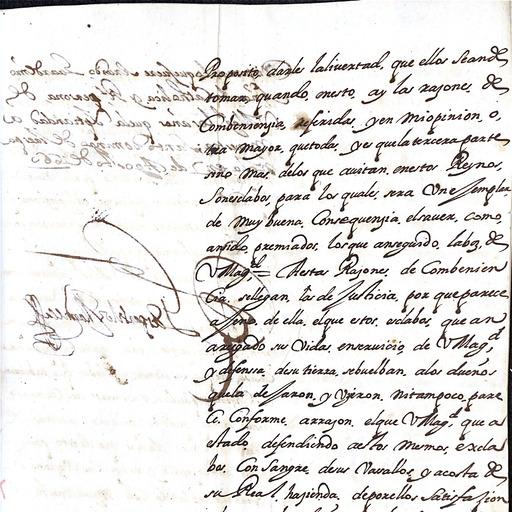 Proposito, darle, la livertad, que ellos se an de
tomar, quando, en esto, ay las rasones, de
Combeniençia, referidas, y en mi opinion, o,
tra mayor, que todas, y es que la tercera parte
sino mas, de los que avitan, en estos Reynos,
Son esclabos, para los quales, sera Un exsemplar,
de muy buena, Consequençia, el saver, como,
an sido, premiados, los que an seguido, la boz, de
V Magd = A estas Rasones, de Combenien
cia, se llegan, las de Justicia, por que parece
ageno, de ella, el que estos, esclabos, que an
aresgado sus Vidas, en servicio, de V Magd
y defensa, de su tierra, se buelban, a los dueños
que la dejaron, y Uyeron, ni tampoco, pare
ce, Conforme, a rrason, el que V Magd que a
estado, defendiendo a estos mesmos, escla
bos, Con Sangre, de sus Vasallos, y a costa de
su Real, hasienda, de por ellos Satisfasion